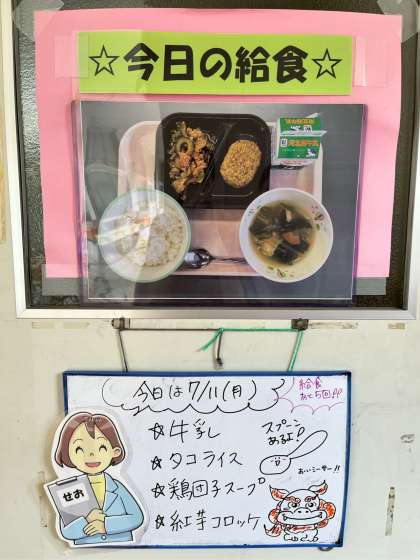 ☆今日の給食☆
今日は7/11(月)
給食
あと5回!!
☆牛乳
☆タコライス
☆鶏団子スープ
☆紅芋コロッケ
スプーン
あるヨ!
おいしーサー!!
せお